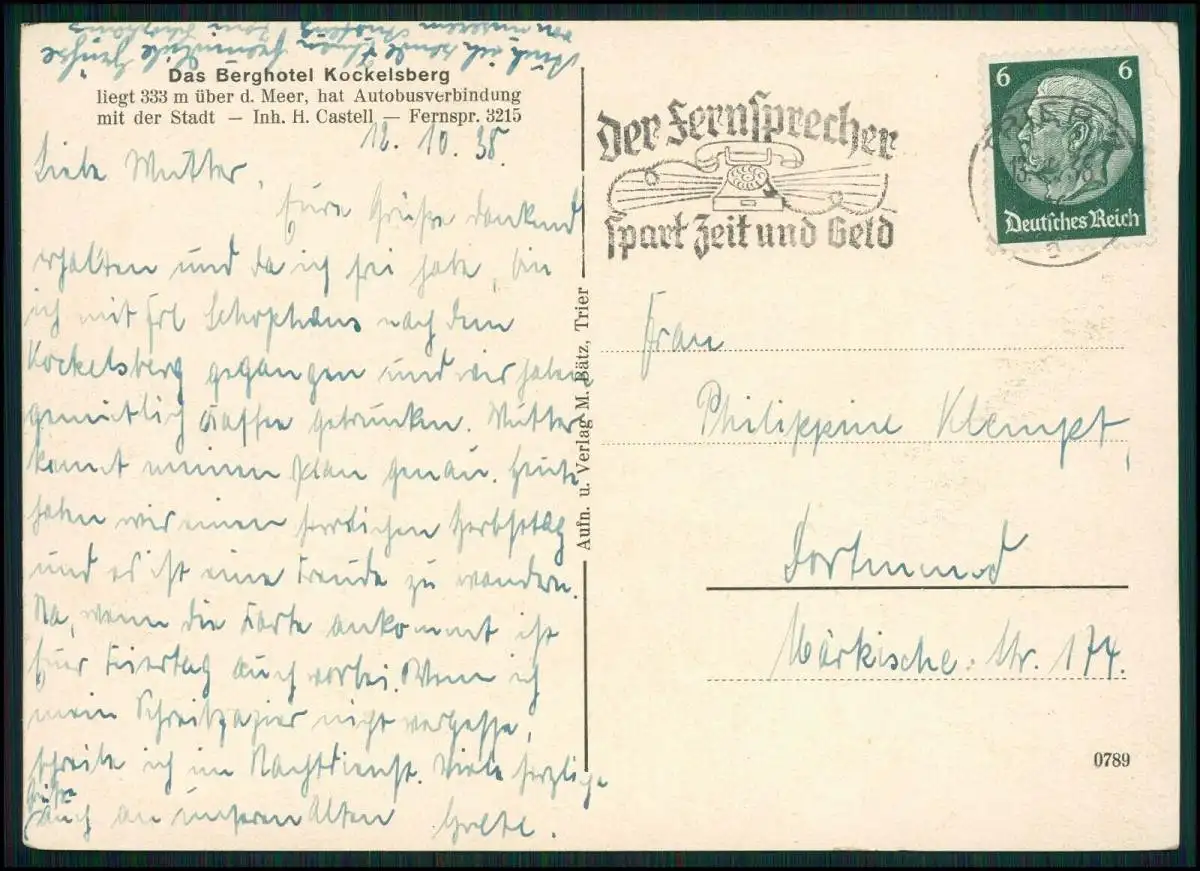 Auch ich sende Ihnen freundliche Grüße
von unserem Ausflug
Das Berghotel Kockelsberg
liegt 333 m über d. Meer, hat Autobusverbindung
mit der Stadt — Inh. H. Castell — Fernspr. 3215
12. 10. 38.
Liebe Mutter,
Eure Grüße dankend
erhalten und da ich frei habe, bin
ich mit Frl. Schophaus nach dem
Kockelsberg gegangen und wir haben
gemütlich Kaffee getrunken. Mutter
kennt meinen Plan genau. Heute
haben wir einen herrlichen Herbsttag
und es ist eine Freude zu wandern.
Na, wenn die Karte ankommt ist
Euer Feiertag auch vorbei. Wenn ich
mein Schreibpapier nicht vergesse,
schreibe ich im Nachtdienst. Viele herzliche
Grüße
auch an unseren Alten Grete.
Aufn. u. Verlag M. Bätz, Trier
Der Fernsprecher
spart Zeit und Geld
6 6
Deutsches Reich
TRIER
Frau
Philippine Klempt,
Dortmund
Märkische. Str. 174.
0789